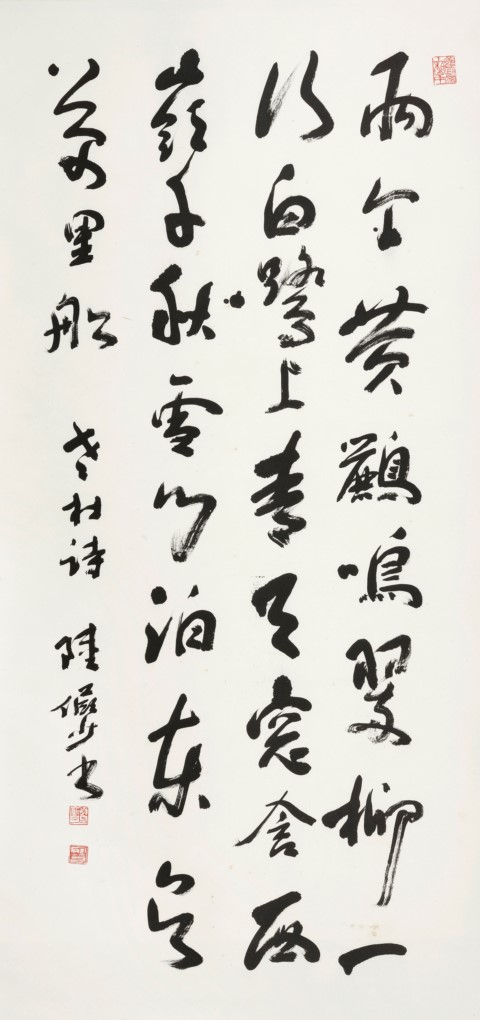 兩个黄鸝鳴翠柳一
行白鷺上青天窓含西
嶺千秋雪門泊東吳
萬里船 老杜詩 陸儼少書